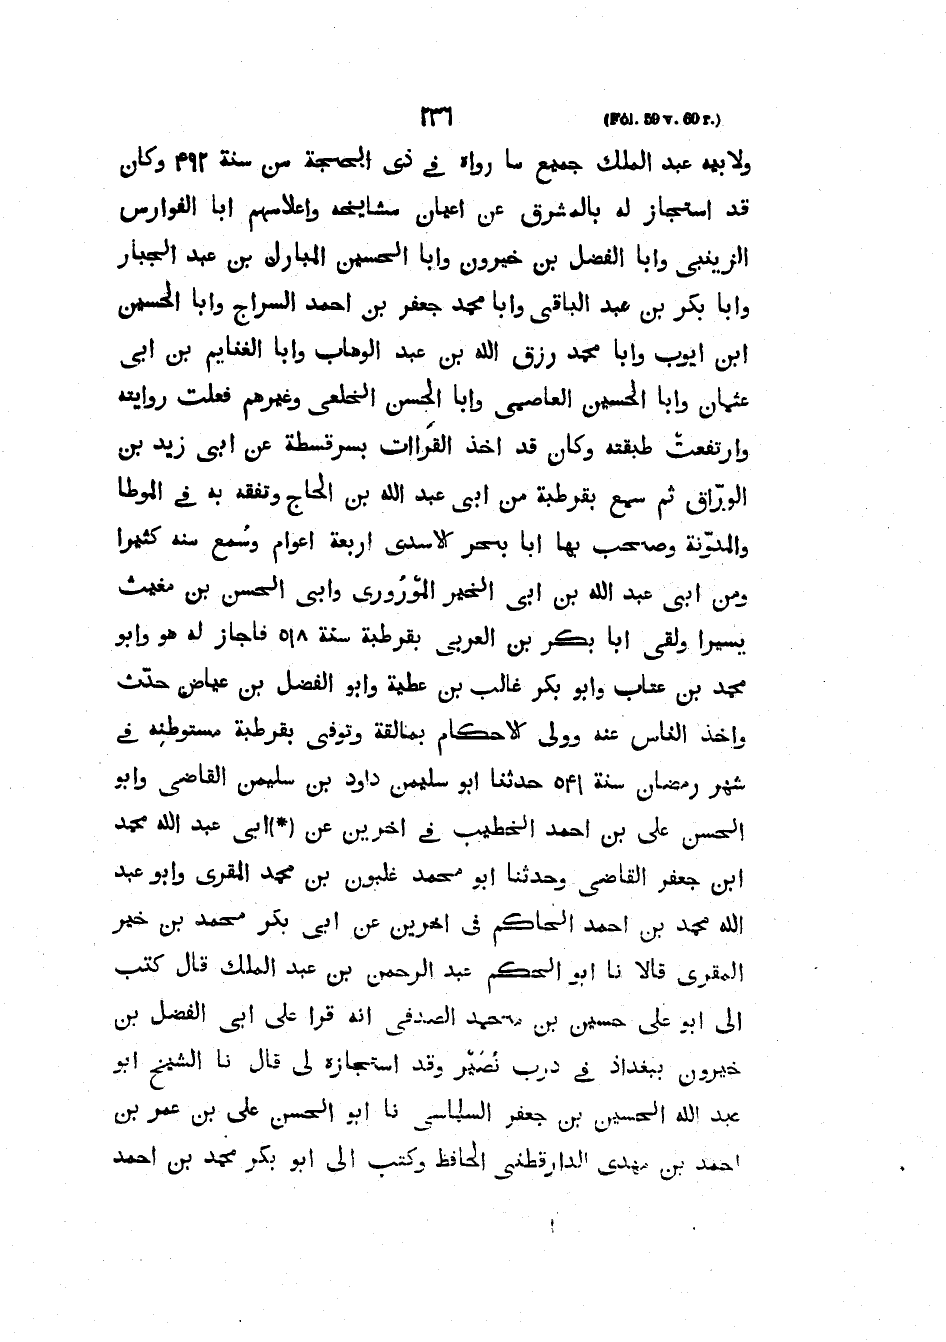 ٢٣٦ (Fol. 59 v. 60 r.)
ولابيه عبد الملك جميع ما رواه في ذى الحجة من سنة ٤٩٢ وكان
قد استجاز له بالمشرق عن اعيان مشايخه واعلامهم ابا الفوارس
الزينبي وابا الفضل بن خيرون وابا الحسين المبارك بن عبد الجبار
وابا بكر بن عبد الباقى وابا محمد جعفر بن احمد السراج وابا الحسين
ابن ايوب وابا محمد رزق الله بن عبد الوهاب وابا الغنايم بن ابى
عثمان وابا الحسين العاصمى وابا الحسن الخلعى وغيرهم فعلت روايته
وارتفعتْ طبقته وكان قد اخذ القراات بسرقسطة عن ابى زيد بن
الورّاق ثم سمع بقرطبة من ابى عبد الله بن الحاج وتفقه به في الموطا
والمدوّنة وصحب بها ابا بحر الاسدى اربعة اعوام وسُمع منه كثيرا
ومن ابى عبد الله بن ابى الخير المَوْرُورى وابى الحسن بن مغيث
يسيرا ولقى ابا بكر بن العربى بقرطبة سنة ٥١٨ فاجاز له هو وابو
محمد بن عتاب وابو بكر غالب بن عطية وابو الفضل بن عياض حدّث
واخذ الناس عنه وولى الاحكام بمالقة وتوفى بقرطبة مستوطنه في
شهر رمضان سنة ٥٤١ حدثنا ابو سليمن داود بن سليمن القاضى وابو
الحسن على بن احمد الخطيب في اخرين عن (*)ابى عبد الله محمد
ابن جعفر القاضى وحدثنا ابو محمد غلبون بن محمد المقرى وابو عبد
الله محمد بن احمد الحاكم فى اخرين عن ابى بكر محمد بن خير
المقرى قالا نا ابو الحكم عبد الرحمن بن عبد الملك قال كتب
الى ابو على حسين بن محمد الصدفى انه قرا على ابى الفضل بن
خيرون ببغداذ في درب نُصَيْر وقد استجازه لى قال نا الشيخ ابو
عبد الله الحسين بن جعفر السلماسى نا ابو الحسن على بن عمر بن
احمد بن مهدى الدارقطنى الحافظ وكتب الى ابو بكر محمد بن احمد